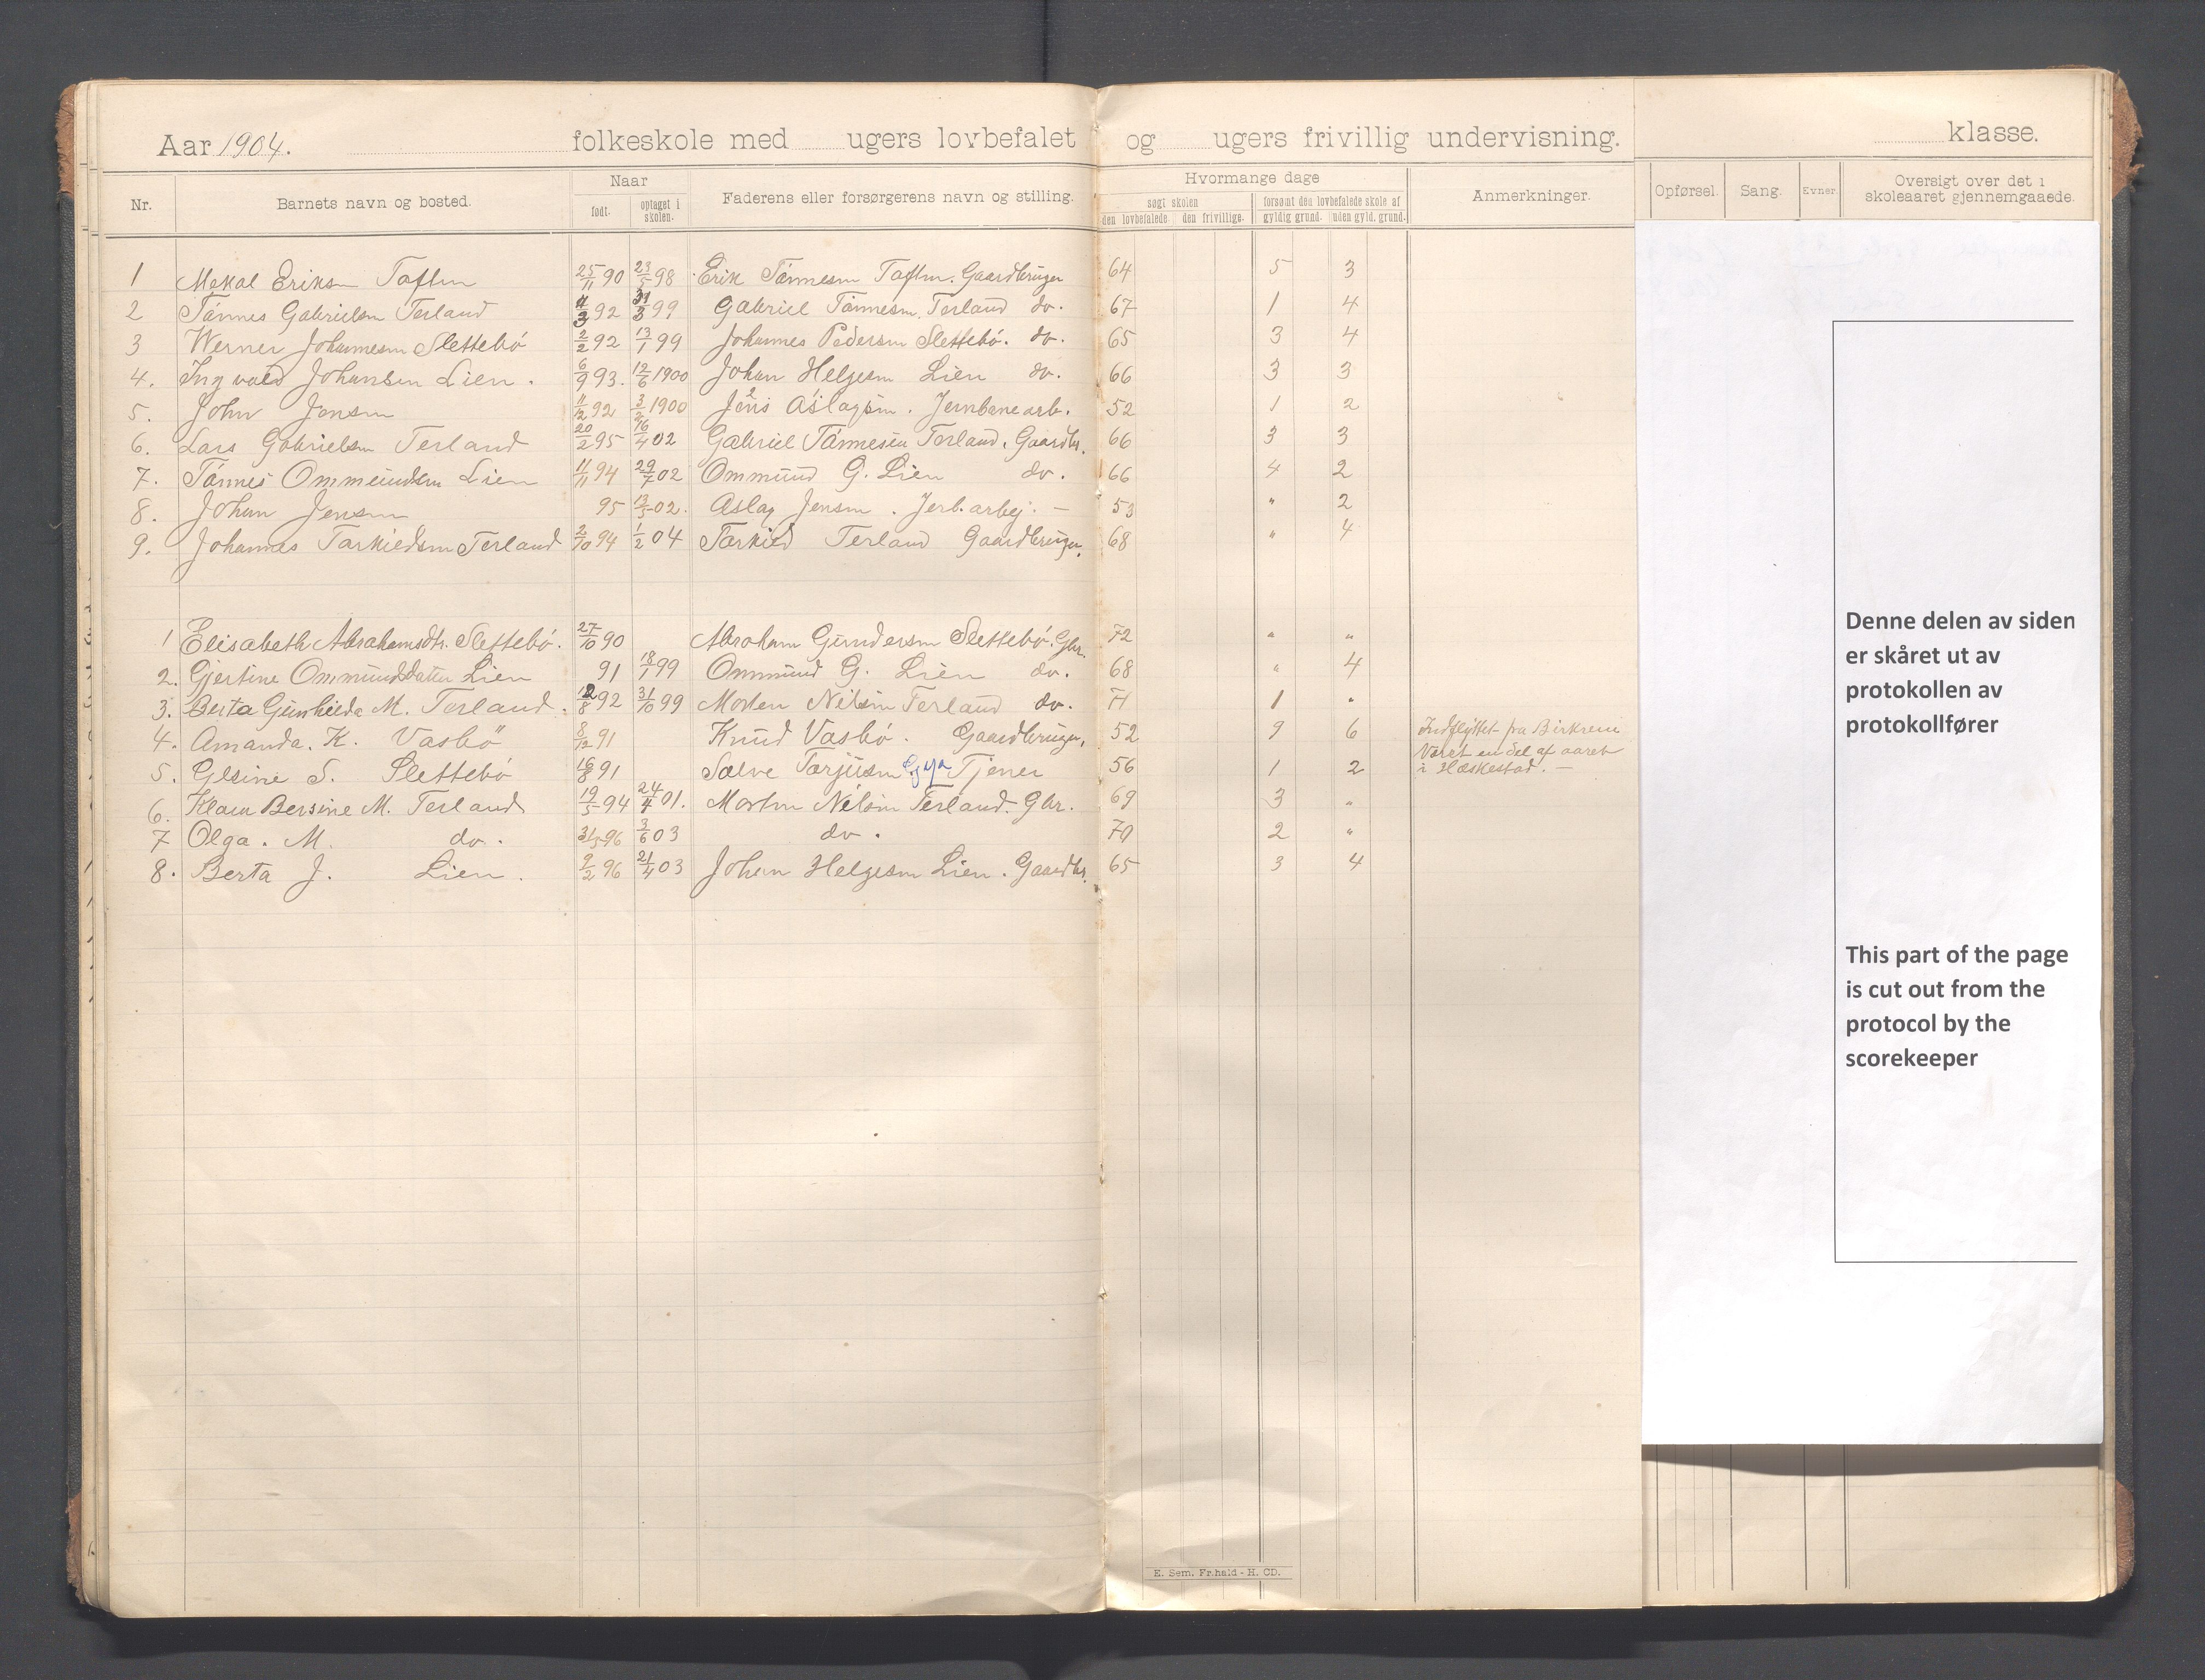 Aar 1904. folkeskole med ugers lovbefalet og ugers frivillig undervisning. klasse.
Nr. Barnets navn og bosted. Naar født. optaget i skolen. Faderens eller forsørgerens navn og stilling. Hvormange dage søgt skolen den lovbefalede. den frivillige. forsømt den lovbefalede skole af gyldig grund. uden gyld. grund. Anmerkninger. Opførsel. Sang. Evner. Oversigt over det i skoleaaret gjennemgaaede.
1 Mekal Eriksen 25/11 90 23/5 98 Erik Tønnesen Gaardbruger 64 5 3
2 Tønnes Gabrielsen Terland 92 99 Gabriel Tønnesen Terland do. 67 1 4
3 Werner Johannesen Slettebø 2/2 92 13/1 99 Johannes Pedersen Slettebø. do. 65 3 4
4. Ingvald Johansen Lien. 6/9 93. 12/6 1900 Johan Helgesen Lien do. 66 3 3
5. John Jensen 11/12 92 1900 Jens Aslagsen. Jernbanearb. 52 1 2
6. Lars Gabrielsen Terland 20/2 95 16/4 02 Gabriel Tønnesen Terland. Gaardbr. 66 3 3
7. Tønnes Ommundsen Lien 11/11 94 29/7 02 Ommund G. Lien do. 66 4 2
8. Johan Jensen 95 13/5 02. Aslag Jensen. Jerb. arbej. — 53 " 2
9. Johannes Tarkieldsen Terland 2/10 94 1/2 04 Tarkield Terland Gaardbruger. 68 " 4
1 Elisabeth Abrahamsdtr. Slettebø. 27/10 90 Abraham Gundersen Slettebø. Gbr. 72 " "
2. Gjertine Ommundsdatter Lien 91 18/1 99 Ommund G. Lien do. 68 " 4
3. Berta Gunhilda M. Terland. 92 31/10 99 Morten Nilsen Terland do. 71 1 "
4. Amanda. K. Vasbö 8/12 91 Knud Vasbø. Gaardbruger. 52 9 6 Indflyttet fra Birkrem
5. Glsine S. Slettebø 16/8 91 Salve Tarjusen Gya Tjener 56 1 2 Været en del af aaret i Heskestad. —
6. Klara Bersine M. Terland 19/5 94 24/4 01. Morten Nilsen Terland. Gbr. 69 3 "
7 Olga. M. do. 31/5 96 3/6 03 do. 70 2 "
8. Berta J. Lien. 9/2 96 21/4 03 Johan Helgesen Lien. Gaardbr. 65 3 4
Denne delen av siden
er skåret ut av
protokollen av
protokollfører
This part of the page
is cut out from the
protocol by the
scorekeeper
E. Sem. Fr.hald - H. CD.